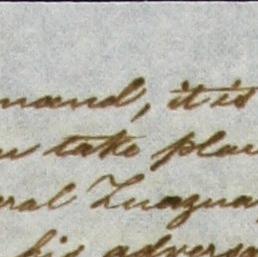 mand, it is
take plac
eral Zuazua,
his advers